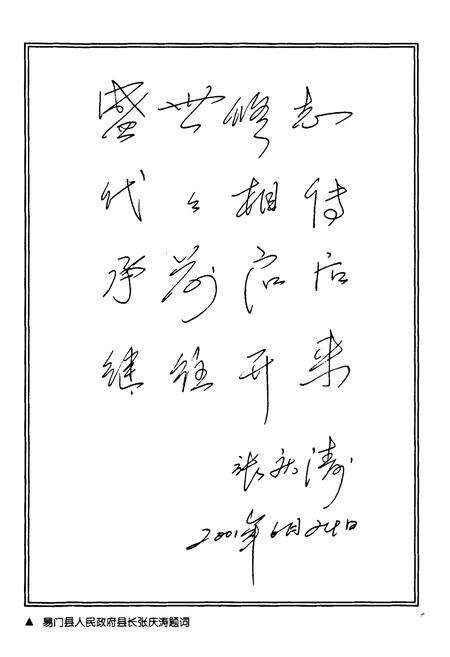 盛世修志
代々相传
承前启后
继往开来
张庆涛
2001年6月24日
▲ 易门县人民政府县长张庆涛题词